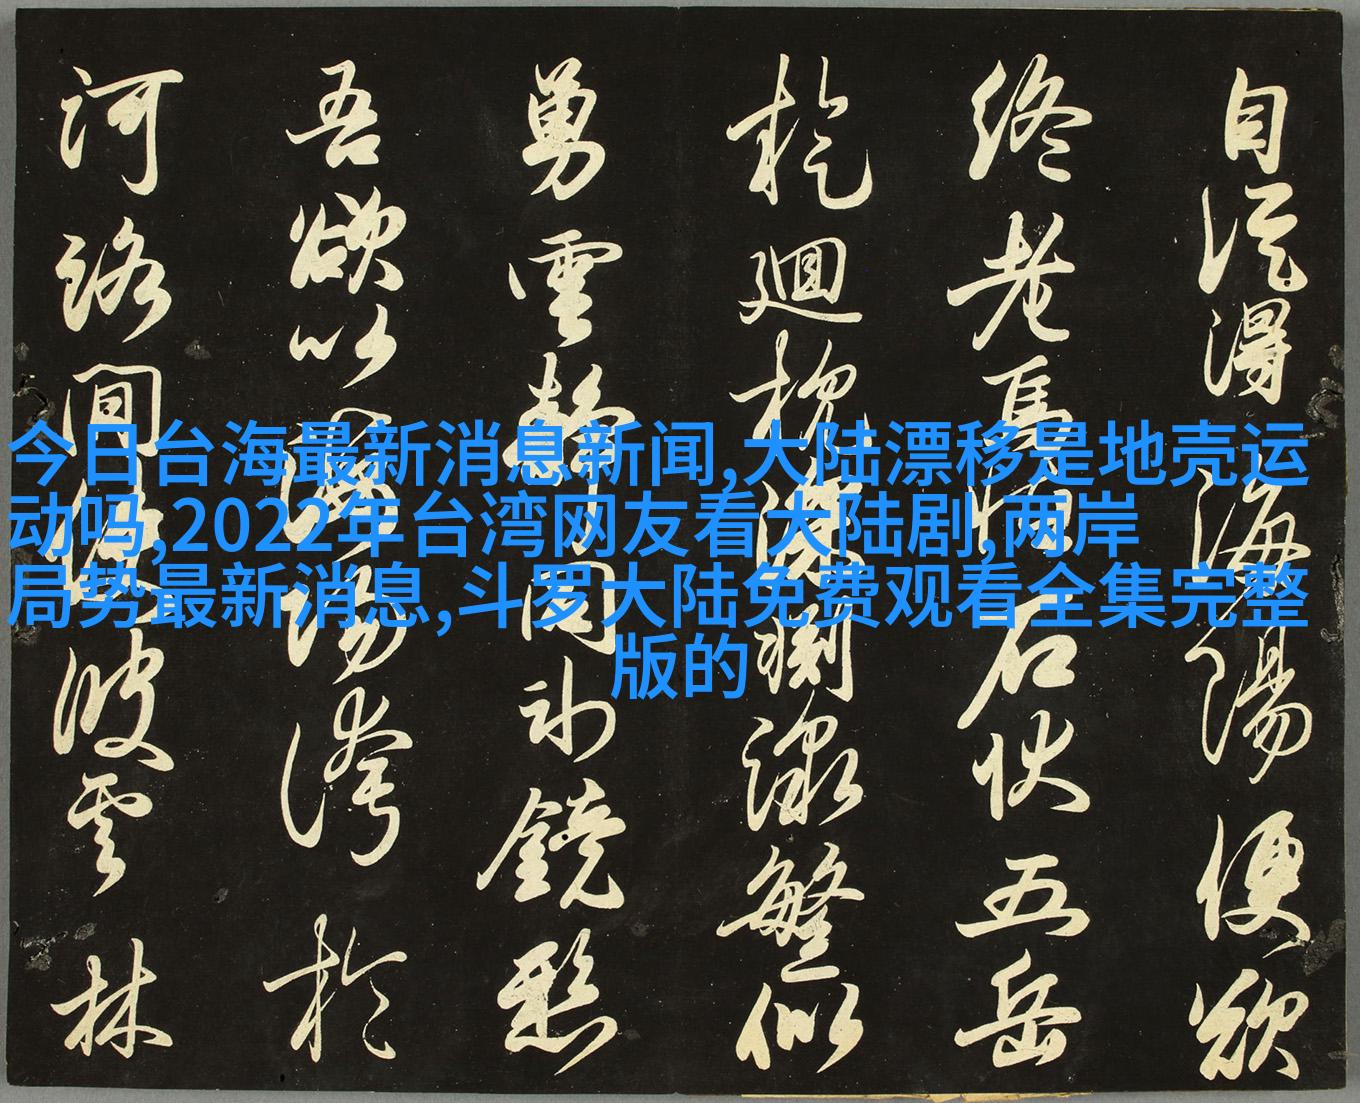 今日台海最新消息新闻,大陆漂移是地壳运
动吗,2022年台湾网友看大陆剧,两岸
局势最新消息,斗罗大陆免费观看全集完整
版的
自從得海陽便欲
終老石五岳
迴枕澗漱繁似
勇雲鏡愁
吾欲以海陽誇於
河路間波雲林